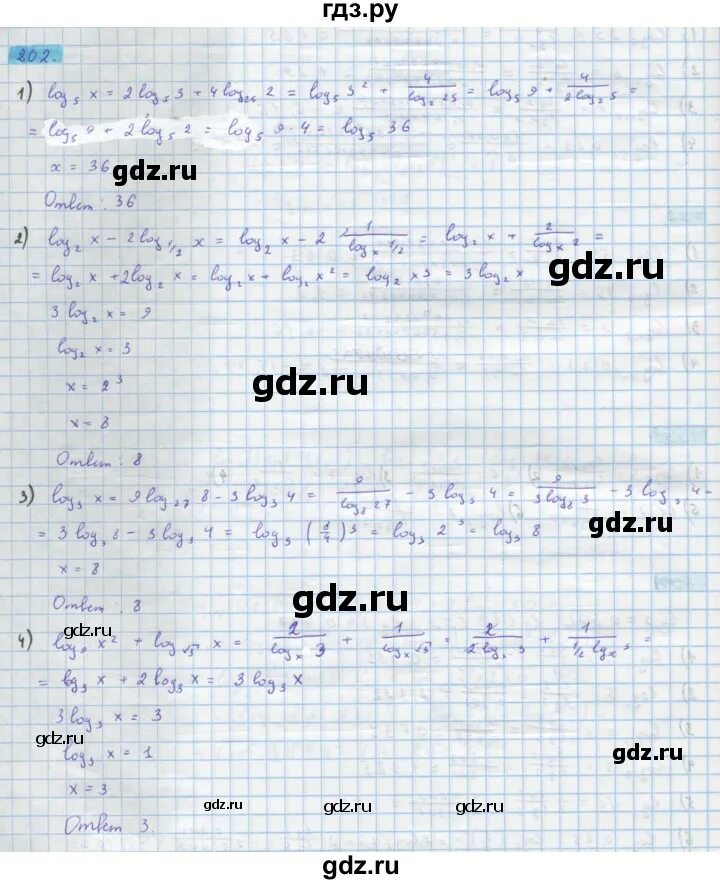 гдз.ру
202.
1) log₅ x = 2 log₅ 3 + 4 log₂₅ 2 = log₅ 3² + 4/log₂ 25 = log₅ 9 + 4/2log₂ 5 =
= log₅ 9 + 2 log₅ 2 = log₅ 9 · 4 = log₅ 36
x = 36
gdz.ru
Ответ: 36
2) log₂ x − 2 log₁/₂ x = log₂ x − 2 1/logₓ 1/2 = log₂ x + 2/logₓ 2 =
= log₂ x + 2 log₂ x = log₂ x + log₂ x² = log₂ x3 = 3 log₂ x
gdz.ru
3 log₂ x = 9
log₂ x = 3
x = 2³
gdz.ru
x = 8
Ответ: 8
3) log₃ x = 9 log₂₇ 8 − 3 log₃ 4 = 9/log₈ 27 − 3 log₃ 4 = 9/3log₈ 3 − 3 log₃ 4 =
gdz.ru
= 3 log₃ 8 − 3 log₃ 4 = log₃ (8/4)³ = log₃ 2³ = log₃ 8
x = 8
Ответ: 8
gdz.ru
gdz.ru
4) log₉ x² + log√3 x = 2/logₓ 3 + 1/logₓ √3 = 2/2logₓ 3 + 1/½ lgₓ 3 =
= lg₃ x + 2 log₃ x = 3 log₃ x
3 log₃ x = 3
gdz.ru
log₃ x = 1
gdz.ru
x = 3
gdz.ru gdz.ru gdz.ru
Ответ 3.
gdz.ru